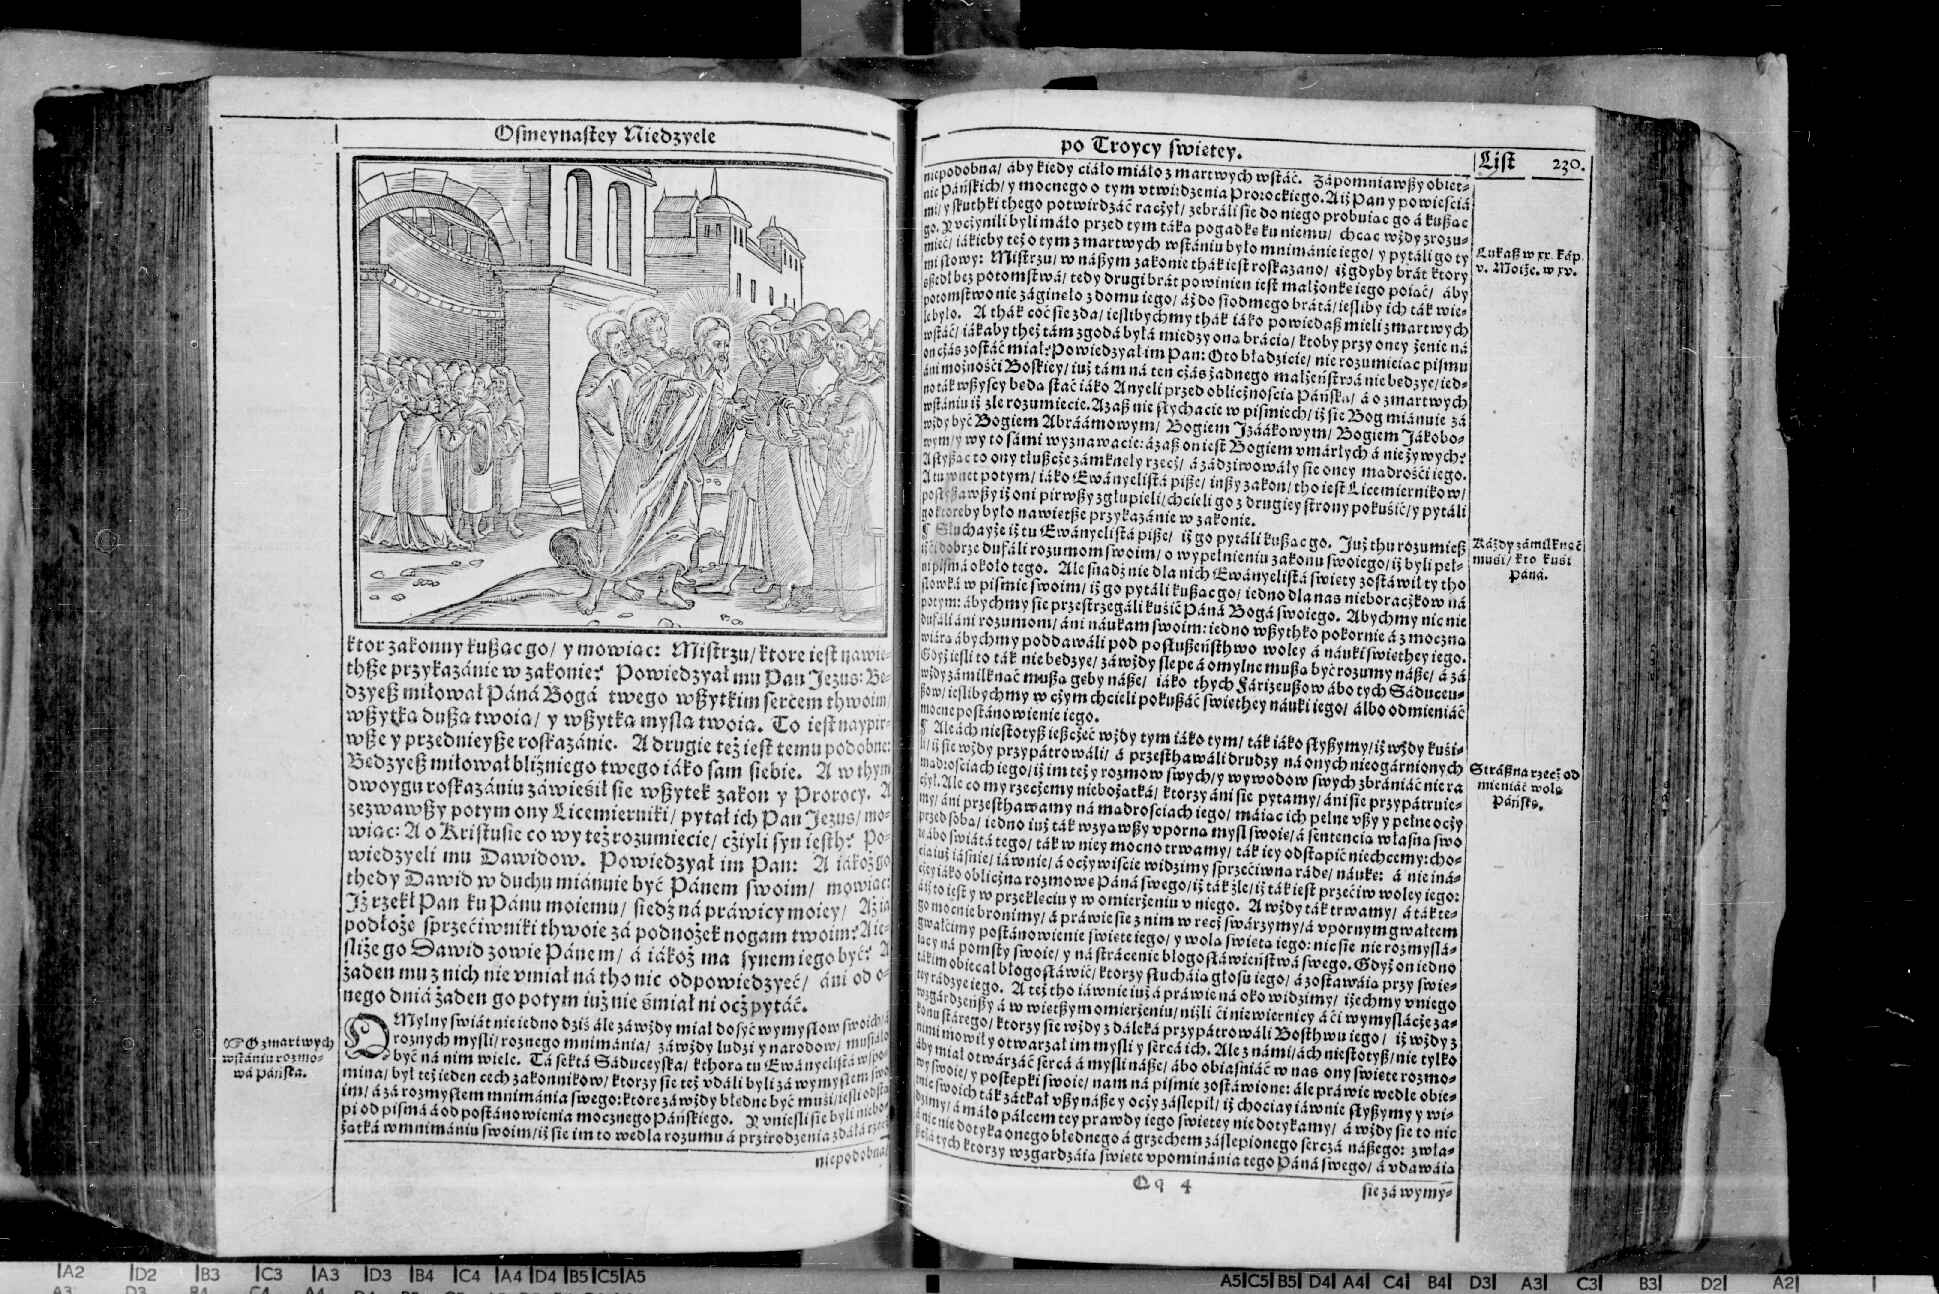 Osmeynastey Niedzyele
ktor zakonny kußąc go/ y mowiąc: Mistrzu/ ktore iest nawię-
thße przykazánie w zakonie? Powiedzyał mu Pan Jezus: Bę-
dzyeß miłował Páná Bogá twego wßytkim sercem thwoim/
wßytką dußą twoią/ y wßytką myslą twoią. To iest naypir-
wße y przednieyße roskazánie. A drugie też iest temu podobne:
Będzyeß miłował bliźniego twego iáko sam siebie. A w thym
dwoygu roskazániu záwiesił sie wßytek zakon y Prorocy. A
zezwawßy potym ony Licemierniki/ pytał ich Pan Jezus/ mo-
wiąc: A o Kristusie co wy też rozumiecie/ cżiyli syn iesth? Po-
wiedzyeli mu Dawidow. Powiedzyał im Pan: A iákoż go
thedy Dawid w duchu miánuie być Pánem swoim/ mowiąc:
Iż rzekł Pan ku Pánu moiemu/ siedź ná práwicy moiey/ Aż ia
podłożę sprzećiwniki thwoie zá podnożek nogam twoim? A ie-
sliże go Dawid zowie Pánem/ á iákoż ma synem iego być? A
żaden mu z nich nie vmiał ná tho nic odpowiedzyeć/ áni od o-
nego dniá żaden go potym iuż nie śmiał ni ocż pytáć.
OMylny swiát nie iedno dziś ále záwżdy miał dosyć wymysłow swoich/ á
roznych mysli/ roznego mnimánia/ záwżdy ludzi y narodow/ musiáło
być ná nim wiele. Tá sektá Sáduceyska/ kthora tu Ewányelistá wspo-
mina/ był też ieden cech zakonnikow/ ktorzy sie też vdáli byli zá wymysłem swo
im/ á zá rozmysłem mnimánia swego: ktore záwżdy błędne być muśi/ iesli odstą
pi od pismá á od postánowienia mocnego Páńskiego. Y vnieśli sie byli niebo-
żątká w mnimániu swoim/ iż sie im to wedla rozumu á przirodzenia zdáłá rzecż
niepodobna/
☞ O zmartwych
wstániu rozmo-
wá Páńska.
po Troycy swiętey.
List 230.
niepodobna/ áby kiedy ciáło miáło z martwych wstáć. Zápomniawßy obiet-
nic Páńskich/ y mocnego o tym vtwirdzenia Prorockiego. A iż Pan y powieśćiá
mi/ y skuthki thego potwirdzáć racżył/ zebráli sie do niego probuiąc go á kußąc
go. Y vcżynili byli máło przed tym táką pogadkę ku niemu/ chcąc wżdy zrozu-
mieć/ iákieby też o tym z martwych wstániu było mnimánie iego/ y pytáli go ty
mi słowy: Mistrzu/ w náßym zakonie thák iest roskazano/ iż gdyby brát ktory
zßedł bez potomstwá/ tedy drugi brát powinien iest małżonkę iego poiąć/ áby
potomstwo nie záginęło z domu iego/ áż do siodmego brátá/ iesliby ich ták wie-
le było. A thák coć sie zda/ ieslibychmy thák iáko powiedaß mieli z martwych
wstáć/ iákaby theż tám zgodá byłá miedzy oną bráćią/ ktoby przy oney żenie ná
on cżás zostáć miał? Powiedzyał im Pan: Oto błądzicie/ nie rozumieiąc pismu
áni możnośći Boskiey/ iuż tám ná ten cżás żadnego małżeństwá nie będzye/ ied-
no ták wßyscy będą stać iáko Anyeli przed oblicżnośćią Páńską/ á o zmartwych
wstániu iż źle rozumiecie. Azaß nie słychacie w piśmiech/ iż sie Bog miánuie zá
wżdy być Bogiem Abráámowym/ Bogiem Jzáákowym/ Bogiem Jákobo-
wym/ y wy to sámi wyznawacie: ázaß on iest Bogiem vmárłych á nie żywych?
A słyßąc to ony tłußcże zámknęły rzecż/ á zádziwowáły sie oney mądrośći iego.
A tu wnet potym/ iáko Ewányelistá piße/ inßy zakon/ tho iest Licemiernikow/
posłyßawßy iż oni pirwßy zgłupieli/ chcieli go z drugiey strony pokuśić/ y pytáli
go ktoreby było nawiętße przykazánie w zakonie.
¶ Słuchayże iż tu Ewányelistá piße/ iż go pytáli kußąc go. Już thu rozumieß
iż ći dobrze dufáli rozumom swoim/ o wypełnieniu zakonu swoiego/ iż byli peł-
ni pismá około tego. Ale snadź nie dla nich Ewányelistá swięty zostáwił ty tho
słowká w piśmie swoim/ iż go pytáli kußąc go/ iedno dla nas nieboracżkow ná
potym: ábychmy sie przestrzegáli kuśić Páná Bogá swoiego. Abychmy nic nie
dufáli áni rozumom/ áni náukam swoim: iedno wßythko pokornie á z mocną
wiárą ábychmy poddawáli pod posłußeństhwo woley á náuki swięthey iego.
Gdyż iesli to ták nie będzye/ záwżdy ślepe á omylne mußą być rozumy náße/ á zá
wżdy zámilknąć mußą gęby náße/ iáko thych Fárizeußow ábo tych Sáduceu-
ßow/ ieslibychmy w cżym chcieli pokußáć swięthey náuki iego/ álbo odmieniáć
mocne postánowienie iego.
¶ Ale ách niestotyß ießcżeć wżdy tym iáko tym/ ták iáko słyßymy/ iż wżdy kuśi-
li/ iż sie wżdy przypátrowáli/ á przesthawáli drudzy ná onych nieogárnionych
mądrośćiach iego/ iż im też y rozmow swych/ y wywodow swych zbrániáć nie ra
cżył. Ale co my rzecżemy niebożątká/ ktorzy áni sie pytamy/ áni sie przypátruie-
my/ áni przesthawamy ná mądrośćiach iego/ máiąc ich pełne vßy y pełne ocży
przed sobą/ iedno iuż ták wzyąwßy vporną mysl swoię/ á sentencią własną swo
ię ábo swiátá tego/ ták w niey mocno trwamy/ ták iey odstąpić niechcemy: cho-
cia iuż iáśnie/ iáwnie/ á ocżywiście widzimy sprzećiwną rádę/ náukę: á nie iná-
cżey iáko oblicżną rozmowę Páná swego/ iż ták źle/ iż ták iest przećiw woley iego:
áż to iest y w przeklęciu y w omierżeniu v niego. A wżdy ták trwamy/ á ták te-
go mocnie bronimy/ á práwie sie z nim w recż swarzymy/ á vpornym gwałtem
gwałcimy postánowienie swięte iego/ y wolą swiętą iego: nic sie nie rozmyślá-
iący ná pomsty swoie/ y ná strácenie błogosłáwieństwá swego. Gdyż on iedno
tákim obiecał błogosłáwić/ ktorzy słucháią głosu iego/ á zostawáią przy swię-
tey rádzye iego. A też tho iáwnie iuż á práwie ná oko widzimy/ iżechmy v niego
wzgárdzeńßy á w więtßym omierżeniu/ niźli ći niewiernicy á ći wymyślácże za-
konu stárego/ ktorzy sie wżdy z daleká przypátrowáli Bosthwu iego/ iż wżdy z
nimi mowił y otwarzał im mysli y sercá ich. Ale z námi/ ách niestotyß/ nie tylko
áby miał otwárzáć sercá á mysli náße/ ábo obiáśniáć w nas ony swięte rozmo-
wy swoie/ y postępki swoie/ nam ná piśmie zostáwione: ále práwie wedle obie-
tnic swoich ták zátkał vßy náße y ocży záslepił/ iż chociay iáwnie słyßymy y wi-
dzimy/ á máło pálcem tey prawdy iego swiętey nie dotykamy/ á wżdy sie to nic
á nic nie dotyka onego błędnego á grzechem záslepionego sercżá náßego: zwła-
ßcżá tych ktorzy wzgardzáią swięte vpominánia tego Páná swego/ á vdawáią
Qq 4
sie zá wymy-
Lukaß w xx. káp.
v. Moiże. w xv.
Káżdy zámilknąć
muśi/ kto kuśi
Páná.
Stráßna rzecż od
mieniáć wolą
Páńską.